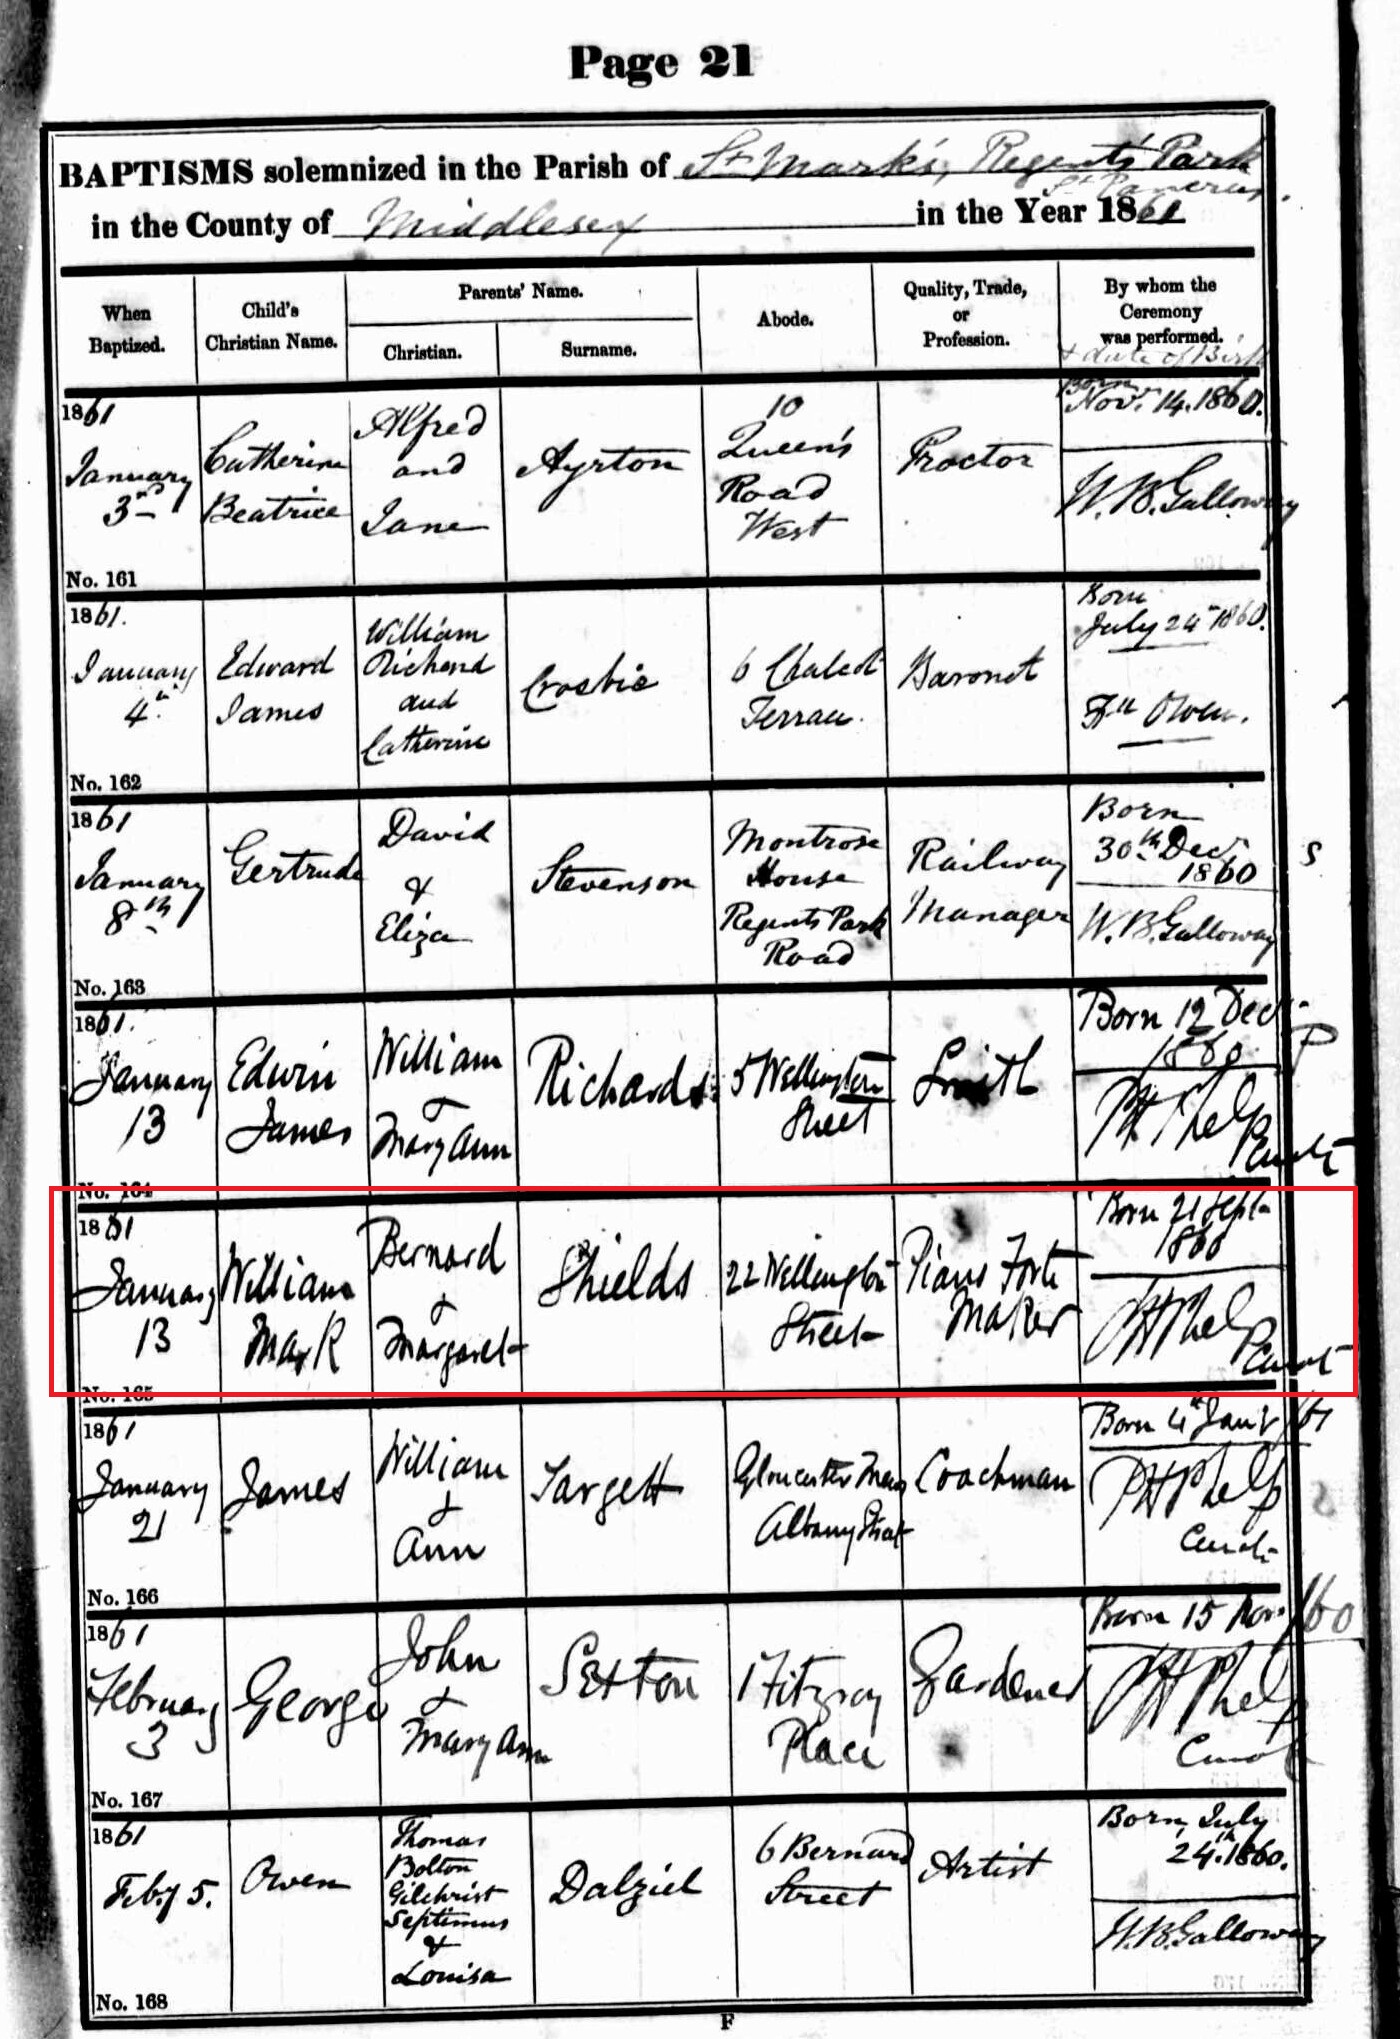 Page 21
BAPTISMS solemnized in the Parish of St Mark's, Regent's Park
St Pancras.
in the County of Middlesex in the Year 1861
When
Baptized.
Child's
Christian Name.
Parents' Name.
Christian.
Surname.
Abode.
Quality, Trade,
or
Profession.
By whom the
Ceremony
was performed.
& date of Birth
1861
January
3rd
No. 161
Catherine
Beatrice
Alfred
and
Jane
Ayrton
10
Queen's
Road
West
Proctor
Born
Novr. 14. 1860.
W. B. Galloway
1861.
January
4th
No. 162
Edward
James
William
Richard
and
Catherine
Crosbie
6 Chalcot
Terrace
Baronet
Born
July 24th 1860.
Owen.
1861
January
8th
No. 163
Gertrude
David
&
Eliza
Stevenson
Montrose
House
Regents Park
Road
Railway
Manager
Born
30th Decr
1860
W. B. Galloway
S
1861.
January
13
No. 164
Edwin
James
William
&
Mary Ann
Richards
5 Wellington
Street
Smith
Born 12 Decr
1860
P
PHPhelp
Curate
1861
January
13
No. 165
William
Mark
Bernard
&
Margaret
Shields
22 Wellington
Street
Piano Forte
Maker
Born 21 Sept
1860
PHPhelp
Curate
1861
January
21
No. 166
James
William
&
Ann
Targett
Gloucester Mews
Albany Street
Coachman
Born 4th Jany /61
PHPhelp
Curate
1861
February
3
No. 167
George
John
&
Mary Ann
Sexton
1 Fitzroy
Place
Gardener
Born 15 Nov /60
PHPhelp
Curate
1861
Feby 5.
No. 168
Owen
Thomas
Bolton
Gilchrist
Septimus
&
Louisa
Dalziel
6 Bernard
Street
Artist
Born July
24th 1860.
W. B. Galloway
F